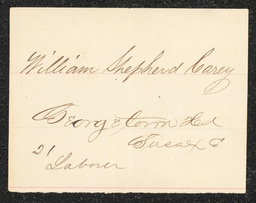 William Shepherd Carey
Georgetown Del
Sussex C
21
Laborer